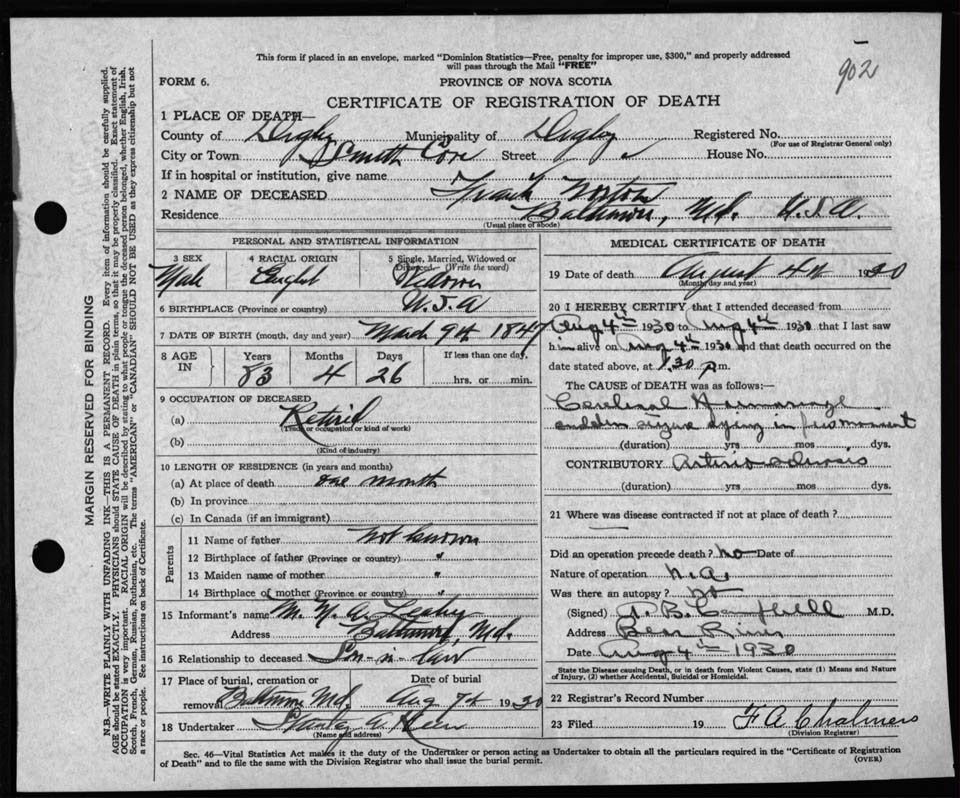 902
This form if placed in an envelope, marked "Dominion Statistics—Free, penalty for improper use, $300," and properly addressed
will pass through the Mail "FREE"
FORM 6. PROVINCE OF NOVA SCOTIA
CERTIFICATE OF REGISTRATION OF DEATH
1 PLACE OF DEATH—
County of Digby Municipality of Digby Registered No.
(For use of Registrar General only)
City or Town Smith Cove Street House No.
If in hospital or institution, give name
2 NAME OF DECEASED Frank Norton
Residence Baltimore, Md. U.S.A.
(Usual place of abode)
PERSONAL AND STATISTICAL INFORMATION
3 SEX 4 RACIAL ORIGIN 5 Single, Married, Widowed or
Divorced. (Write the word)
Male English Widower
6 BIRTHPLACE (Province or country) U.S.A
7 DATE OF BIRTH (month, day and year) March 9th 1847
8 AGE IN Years Months Days If less than one day.
83 4 26 hrs. or min.
9 OCCUPATION OF DECEASED
(a) Retired
(Trade or occupation or kind of work)
(b)
(Kind of industry)
10 LENGTH OF RESIDENCE (in years and months)
(a) At place of death one month
(b) In province
(c) In Canada (if an immigrant)
Parents
11 Name of father not known
12 Birthplace of father (Province or country) "
13 Maiden name of mother "
14 Birthplace of mother (Province or country) "
15 Informant's name M. A. Leahy
Address Baltimore, Md.
16 Relationship to deceased Son-in-law
17 Place of burial, cremation or Date of burial
removal Baltimore Md. Aug 1930
18 Undertaker Stanley
(Name and address)
MEDICAL CERTIFICATE OF DEATH
19 Date of death August 4th 1930
(Month, day and year)
20 I HEREBY CERTIFY that I attended deceased from
Aug 4th 1930 to Aug 4th 1930 that I last saw
him alive on Aug 4th 1930 and that death occurred on the
date stated above, at 1.30 p.m.
The CAUSE OF DEATH was as follows:—
Cerebral Haemorrage
dying in few moment
(duration) yrs mos dys.
CONTRIBUTORY Arteriosclerosis
(duration) yrs mos dys.
21 Where was disease contracted if not at place of death?
Did an operation precede death? no Date of
Nature of operation no
Was there an autopsy? no
(Signed) B. Campbell M.D.
Address Bear River
Date Aug 4th 1930
State the Disease causing Death, or in death from Violent Causes, state (1) Means and Nature
of Injury, (2) whether Accidental, Suicidal or Homicidal.
22 Registrar's Record Number
23 Filed 19 F A Chalmers
(Division Registrar)
Sec. 46—Vital Statistics Act makes it the duty of the Undertaker or person acting as Undertaker to obtain all the particulars required in the "Certificate of Registration
of Death" and to file the same with the Division Registrar who shall issue the burial permit. (OVER)
MARGIN RESERVED FOR BINDING
N.B.—WRITE PLAINLY WITH UNFADING INK—THIS IS A PERMANENT RECORD. Every item of information should be carefully supplied.
AGE should be stated EXACTLY. PHYSICIANS should STATE CAUSE OF DEATH in plain terms, so that it may be properly classified. Exact statement of
OCCUPATION is very important. RACIAL ORIGIN will be described by stating to what people or tongue the deceased person belonged, whether English, Irish,
Scotch, French, German, Russian, Ruthenian, etc. The terms "AMERICAN" or "CANADIAN" SHOULD NOT BE USED as they express citizenship but not
a race or people. See instructions on back of Certificate.